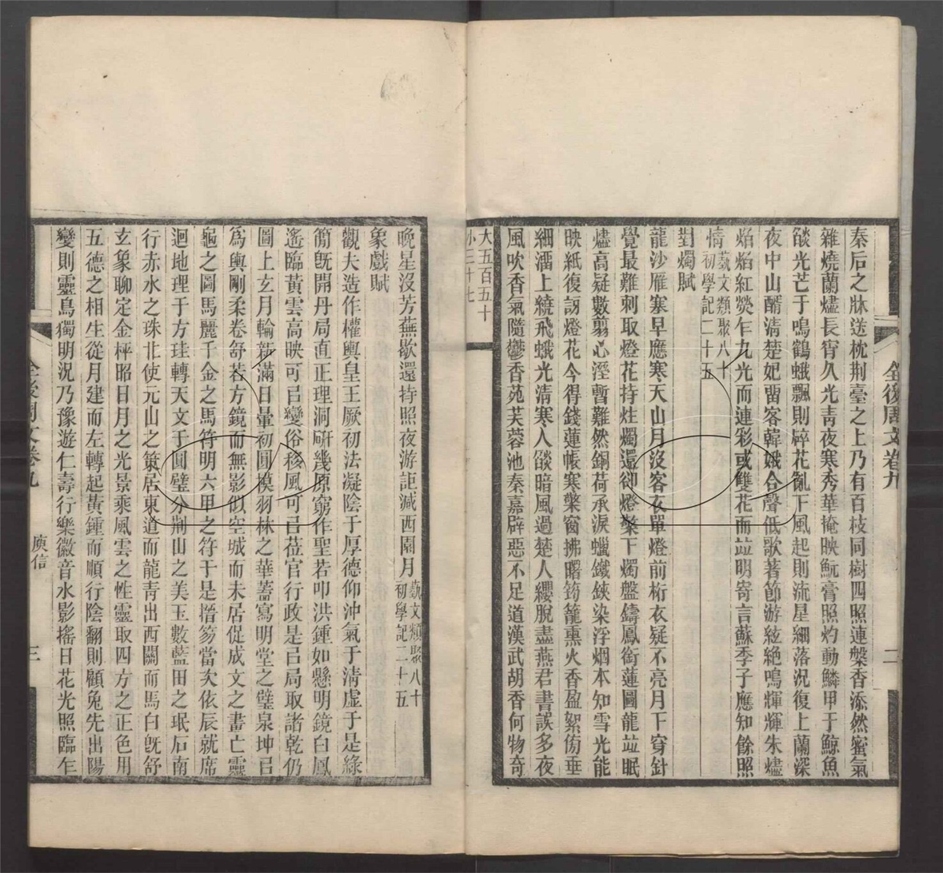 秦后之牀送枕荆臺之上乃有百枝同樹四照連槃香添然蜜氣
雜燒蘭燼長宵久光青夜寒秀華掩映魭膏照灼動鱗甲于鯨魚
燄光芒于鳴鶴蛾飄則碎花亂下風起則流星細落況復上蘭深
夜中山醑清楚妃畱客韓娥合聲低歌著節游絃絶鳴輝輝朱燼
焰焰紅熒乍九光而連彩或雙花而竝明寄言蘇季子應知餘照
情藝文類聚八十初學記二十五
對燭賦
龍沙雁塞早應寒天山月沒客衣單燈前桁衣疑不亮月下穿針
覺最難刺取燈花持炷燭還卻燈檠下燭盤鑄鳳銜蓮圖龍竝眠
燼高疑數翦心溼暫難然銅荷承淚蠟鐵鋏染浮烟本知雪光能
映紙復訝燈花今得錢蓮帳寒檠窗拂曙筠籠熏火香盈絮傍垂
細溜上繞飛蛾光清寒入燄暗風過楚人纓脫盡燕君書誤多夜
風吹香氣隨鬱香苑芙蓉池秦嘉辟惡不足道漢武胡香何物奇
大五百五十
小三十七
全後周文卷九
二
晚星沒芳蕪歇還持照夜游詎減西園月藝文類聚八十初學記二十五
象戲賦
觀夫造作權輿皇王厥初法凝陰于厚德仰沖氣于清虛于是綠
簡旣開丹局直正理洞硏幾原窮作聖若叩洪鍾如懸明鏡白鳳
遙臨黃雲高映可㠯變俗移風可㠯莅官行政是㠯局取諸乾仍
圖上玄月輪新滿日暈初圓模羽林之華蓋寫明堂之璧泉坤㠯
爲輿剛柔卷舒若方鏡而無影似空城而未居促成文之畫亡靈
龜之圖馬麗千金之馬符明六甲之符于是擂篸當次依辰就席
迴地理于方珪轉天文于圓璧分荆山之美玉數藍田之珉石南
行赤水之珠北使元山之策居東道而龍青出西關而馬白旣舒
玄象聊定金枰昭日月之光景乘風雲之性靈取四方之正色用
五德之相生從月建而左轉起黃鍾而順行陰翻則顧兔先出陽
變則靈烏獨明況乃豫遊仁壽行樂徽音水影搖日花光照臨乍
全後周文卷九
庾信
三